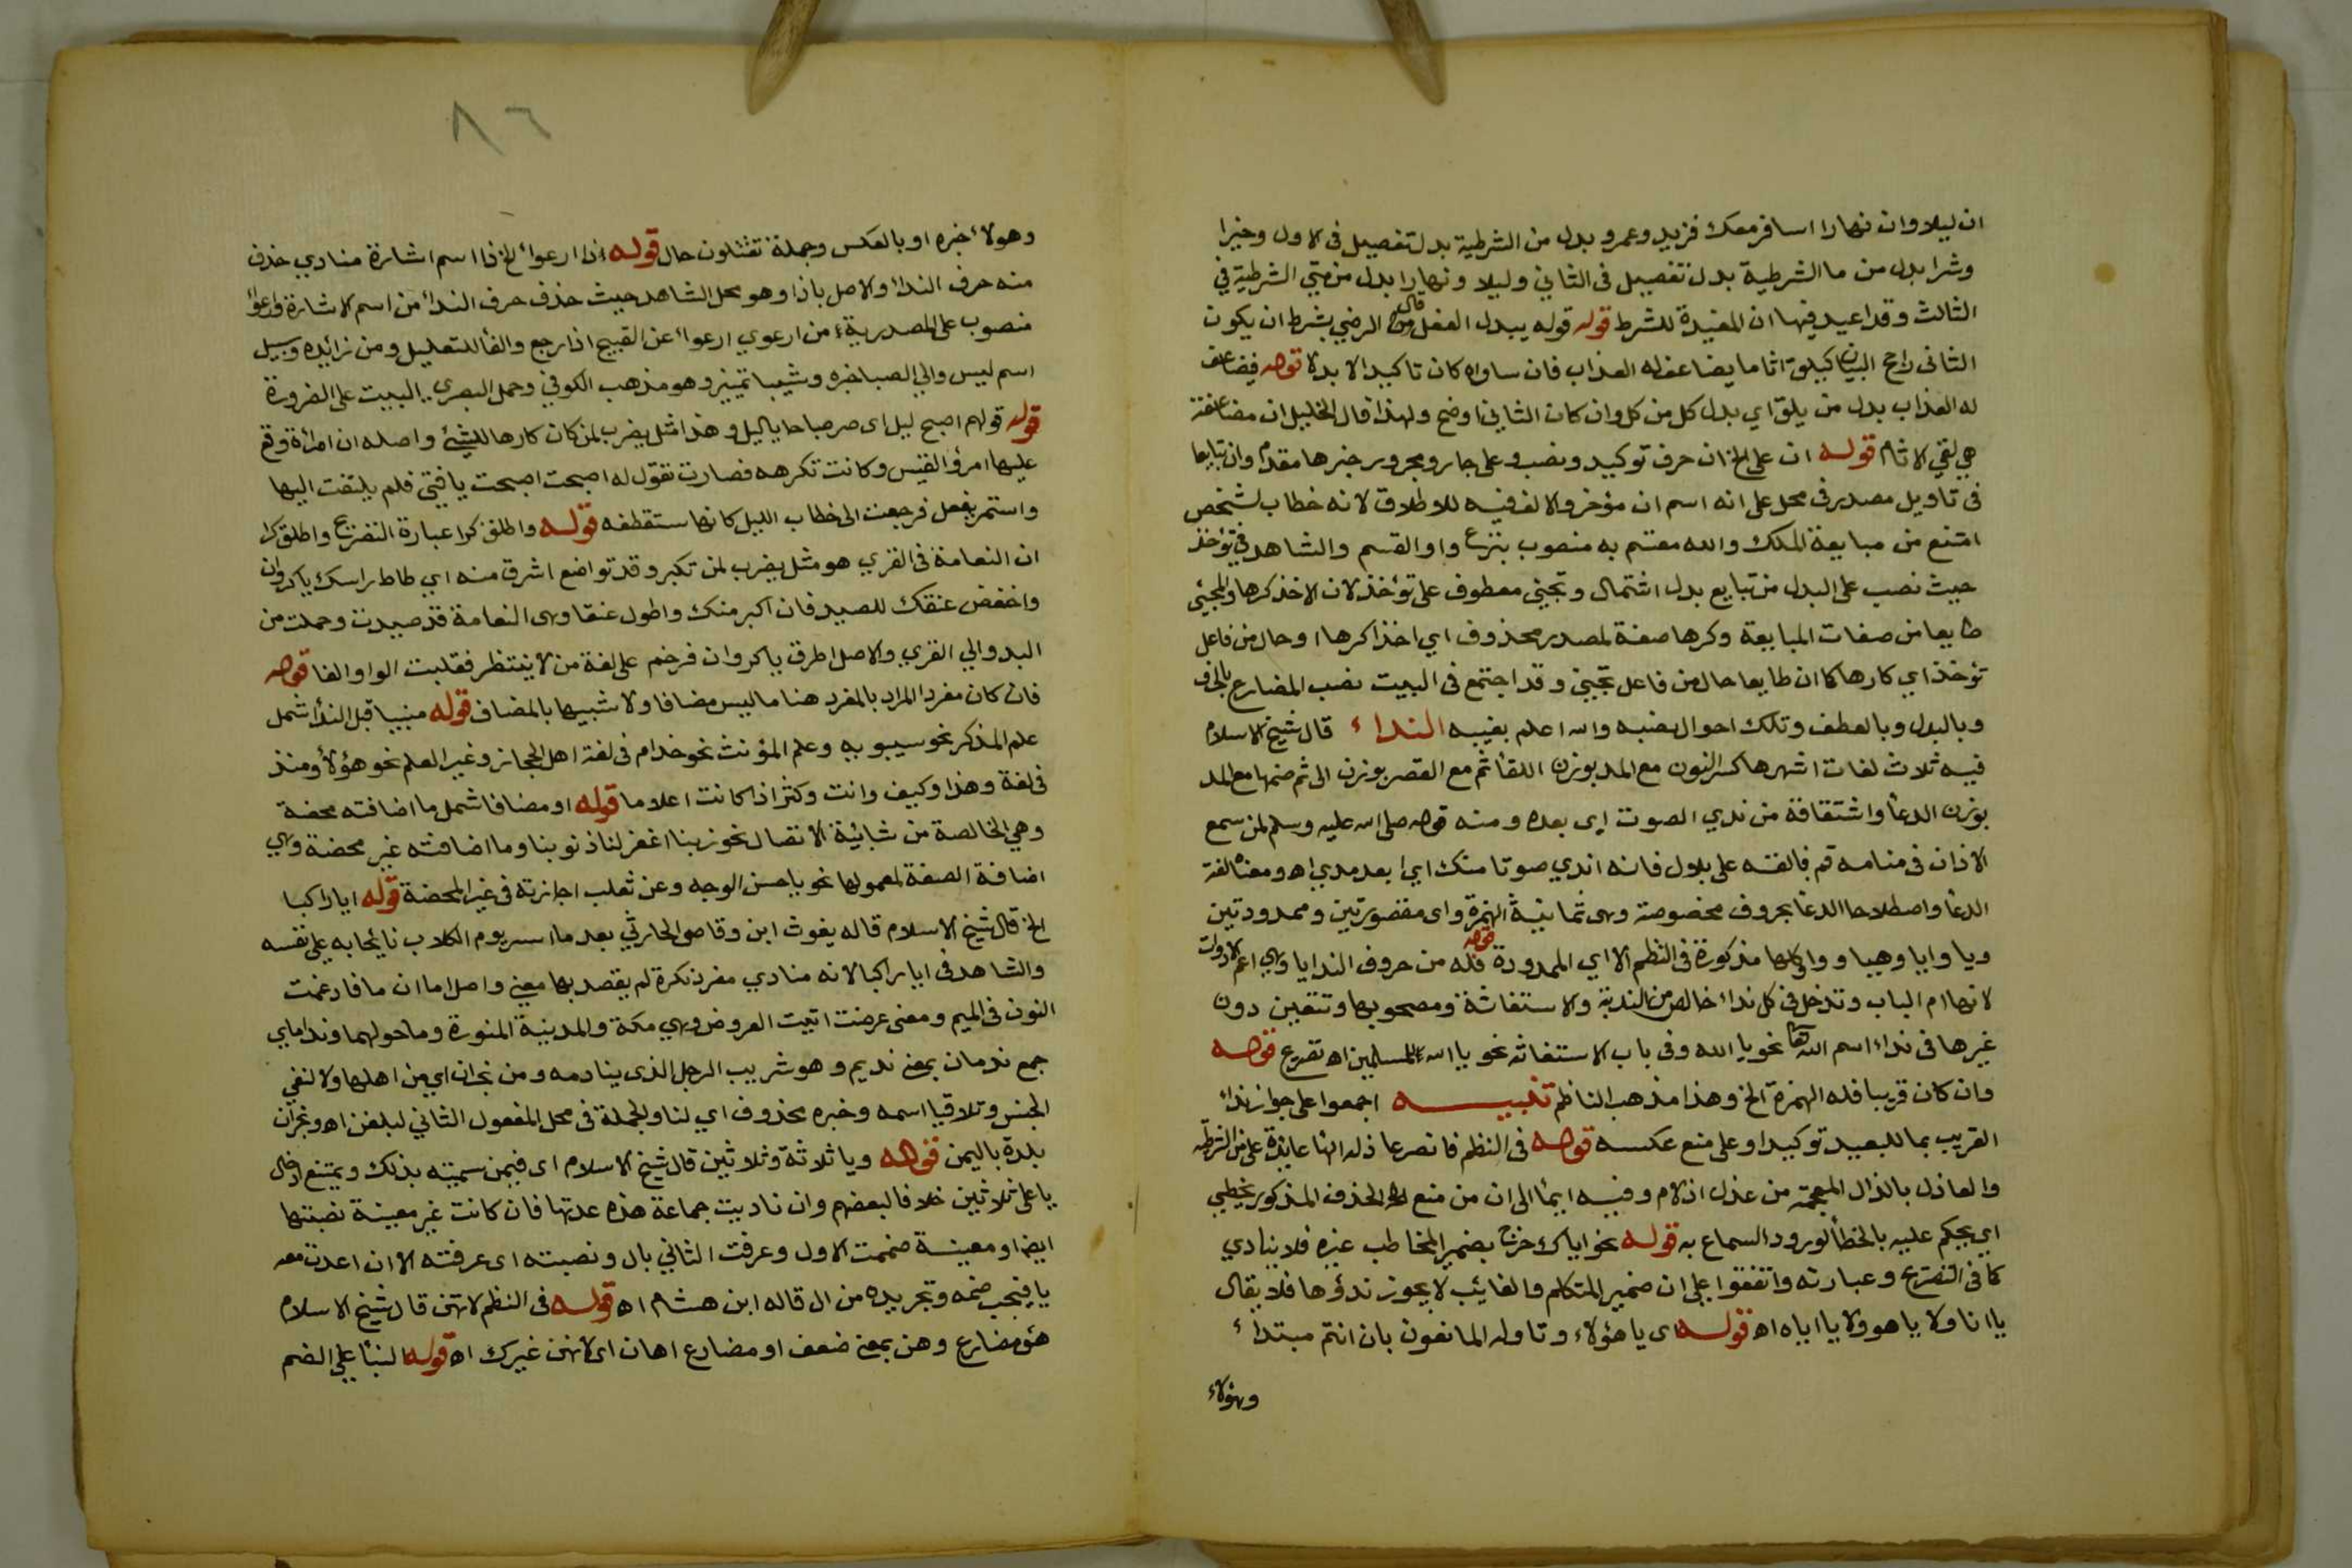 ان ليلا وان نهارا اسافر معك فزيد وعمرو بدل من الشرطية بدل تفصيل فى الاول وخيرا
وشرا بدل من ما الشرطية بدل تفصيل فى الثاني وليلا ونهارا بدل من متي الشرطية في
الثالث وقد اعيد فيها ان المفيدة للشرط قوله قوله يبدل الفعل من قال الرضي بشرط ان يكون
الثانى راجح البيان كيلق اثاما يضاعف له العذاب فان ساواه كان تاكيدا لا بدلا قوله فيضاعف
له العذاب بدل من يلق اي بدل كل من كل وان كان الثاني اوضح ولهذا قال الخليل ان مضاعفة
هي لقي الاثام قوله ان على الخ ان حرف توكيد ونصب وعلى جار ومجرور خبرها مقدم وان تبايعا
فى تاويل مصدر فى محل على انه اسم ان مؤخر والالف فيه للاطلاق لانه خطاب لشخص
امتنع من مبايعة الملك والله مقسم به منصوب بنزع واو القسم والشاهد في تؤخذ
حيث نصب على البدل من تبايع بدل اشتمال وتجئي معطوف على تؤخذ لان الاخذ كرها والمجئي
طايعا من صفات المبايعة وكرها صفة لمصدر محذوف اي اخذا كرها او حال من فاعل
تؤخذ اي كارها كما ان طايعا حال من فاعل تجيئ وقد اجتمع فى البيت نصب المضارع بالحرف
وبالبدل وبالعطف وتلك احوال نصبه والله اعلم بغيبه النداء قال شيخ الاسلام
فيه ثلاث لغات اشهرها كسر النون مع المد بوزن اللقأ ثم مع القصر بوزن الى ثم ضمها مع المد
بوزن الدعأ واشتقاقه من ندي الصوت اي بعده ومنه قوله صلى الله عليه وسلم لمن سمع
الاذان فى منامه قم فالقه على بلال فانه اندي صوتا منك اي ابعد مدي اه ومعناه لغة
الدعأ واصطلاحا الدعأ بحروف مخصوصة وهى ثمانية الهمزة واى مقصورتين وممدودتين
ويا وايا وهيا ووا وكلها مذكورة فى النظم الا اي الممدودة قوله فله من حروف الندا يا وهي اعم الادوات
لانها ام الباب وتدخل فى كل نداء خالص من الندبة والاستغاثة ومصحوبها وتتعين دون
غيرها فى نداء اسم الله نحو يا الله وفى باب الاستغاثه نحو يا الله للمسلمين اه تصريح قوله
وان كان قريبا فله الهمزة الخ وهذا مذهب الناظم تنبيه اجمعوا على جواز نداء
القريب بما للبعيد توكيدا وعلى منع عكسه قوله فى النظم فانصر عاذله الها عايدة على من الشرطية
والعاذل بالذال المعجمة من عذل اذ لام وفيه ايمأ الى ان من منع الحذف المذكور يخطي
اي يحكم عليه بالخطأ لورود السماع به قوله نحو اياك خرج بضمير المخاطب غيره فلا ينادي
كما فى التصريح وعبارته واتفقوا على ان ضمير المتكلم والغائب لا يجوز ندؤها فلا يقال
يا انا ولا يا هو ولا يا اياه اه قوله اى يا هؤلاء وتاوله المانعون بان انتم مبتداء
وهؤلاء
٨٦
وهولاء خبره او بالعكس وجملة تقتلون حال قوله اذا ارعواء الخ ذا اسم اشارة منادي حذف
منه حرف النداء والاصل ياذا وهو محل الشاهد حيث حذف حرف النداء من اسم الاشارة وارعواء
منصوب على المصدرية من ارعوي ارعواء عن القبيح اذا رجع والفأ للتعليل ومن زائده وسبيل
اسم ليس والي الصبا خبره وشيبا تمييز وهو مذهب الكوفي وحمل البصرى البيت على الضرورة
قوله قولهم اصبح ليل اى صر صباحا يا ليل وهذا مثل يضرب لمن كان كارها للشئ واصله ان امرأة وقع
عليها امرؤ القيس وكانت تكرهه فصارت تقول له اصبحت اصبحت يا فتى فلم يلتفت اليها
واستمر يفعل فرجعت الى خطاب الليل كانها ستقطفه قوله واطلق كرا عبارة التصريح واطلق كرا
ان النعامة فى القري هو مثل يضرب لمن تكبر وقد تواضع اشرف منه اي طاطا راسك يا كروان
واخفض عنقك للصيد فان اكبر منك واطول عنقا وهى النعامة قد صيدت وحملت من
البدو الي القري والاصل اطرق يا كروان فرخم على لغة من لا ينتظر فقلبت الواو الفا قوله
فان كان مفردا المراد بالمفرد هنا ما ليس مضافا ولا شبيها بالمضاف قوله مبنيا قبل الندأ شمل
علم المذكر نحو سيبويه وعلم المؤنث نحو خدام فى لغة اهل الحجاز وغير العلم نحو هؤلأ ومنذ
فى لغة وهذا وكيف وانت وكثر اذا كانت اعلاما قوله او مضافا شمل ما اضافته محضة
وهي الخالصة من شائبة الانفصال نحو ربنا اغفر لنا ذنوبنا وما اضافته غير محضة وهي
اضافة الصفة لمعمولها نحو يا حسن الوجه وعن ثعلب اجازته فى غير المحضة قوله ايا راكبا
الخ قال شيخ الاسلام قاله يغوث ابن وقاص الحارثي بعد ما اسر يوم الكلاب نائحا به على نفسه
والشاهد فى ايا راكبا لانه منادي مفرد نكرة لم يقصد بها معين واصل اما ان ما فادغمت
النون فى الميم ومعنى عرضت اتيت العروض وهي مكة والمدينة المنورة وما حولهما ونداماي
جمع ندمان بمعنى نديم وهو شريب الرجل الذى ينادمه ومن نجران اي من اهلها ولا لنفي
الجنس وتلاقيا اسمه وخبره محذوف اي لنا والجملة فى محل المفعول الثاني لبلغن اه ونجران
بلدة باليمن قوله ويا ثلاثة وثلاثين قال شيخ الاسلام اى فيمن سميته بذلك ويمتنع ادخال
يا على ثلاثين خلافا لبعضهم وان ناديت جماعة هذه عدتها فان كانت غير معينة نصبتها
ايضا او معينة ضممت الاول وعرفت الثاني بال ونصبته اى عرفته الا ان اعدت معه
يا فيجب ضمه وتجريده من ال قاله ابن هشام اه قوله فى النظم لا تهن قال شيخ الاسلام
هو مضارع وهن بمعنى ضعف او مضارع اهان اى لا تهن غيرك اه قوله لبنأ على الضم